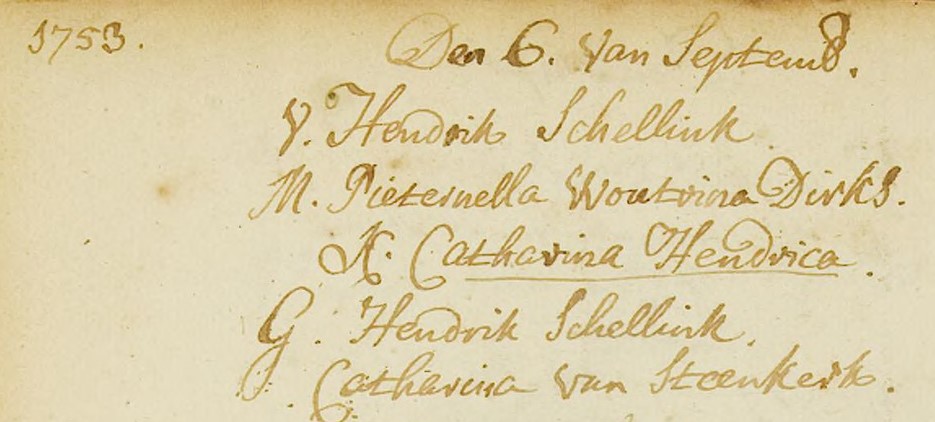 1753. Den 6. Van Septemb.
V. Hendrik Schellink.
M. Pieternella Woutrina Dirks.
K. Catharina Hendrica.
G. Hendrik Schellink.
Catharina van Steenkerk.